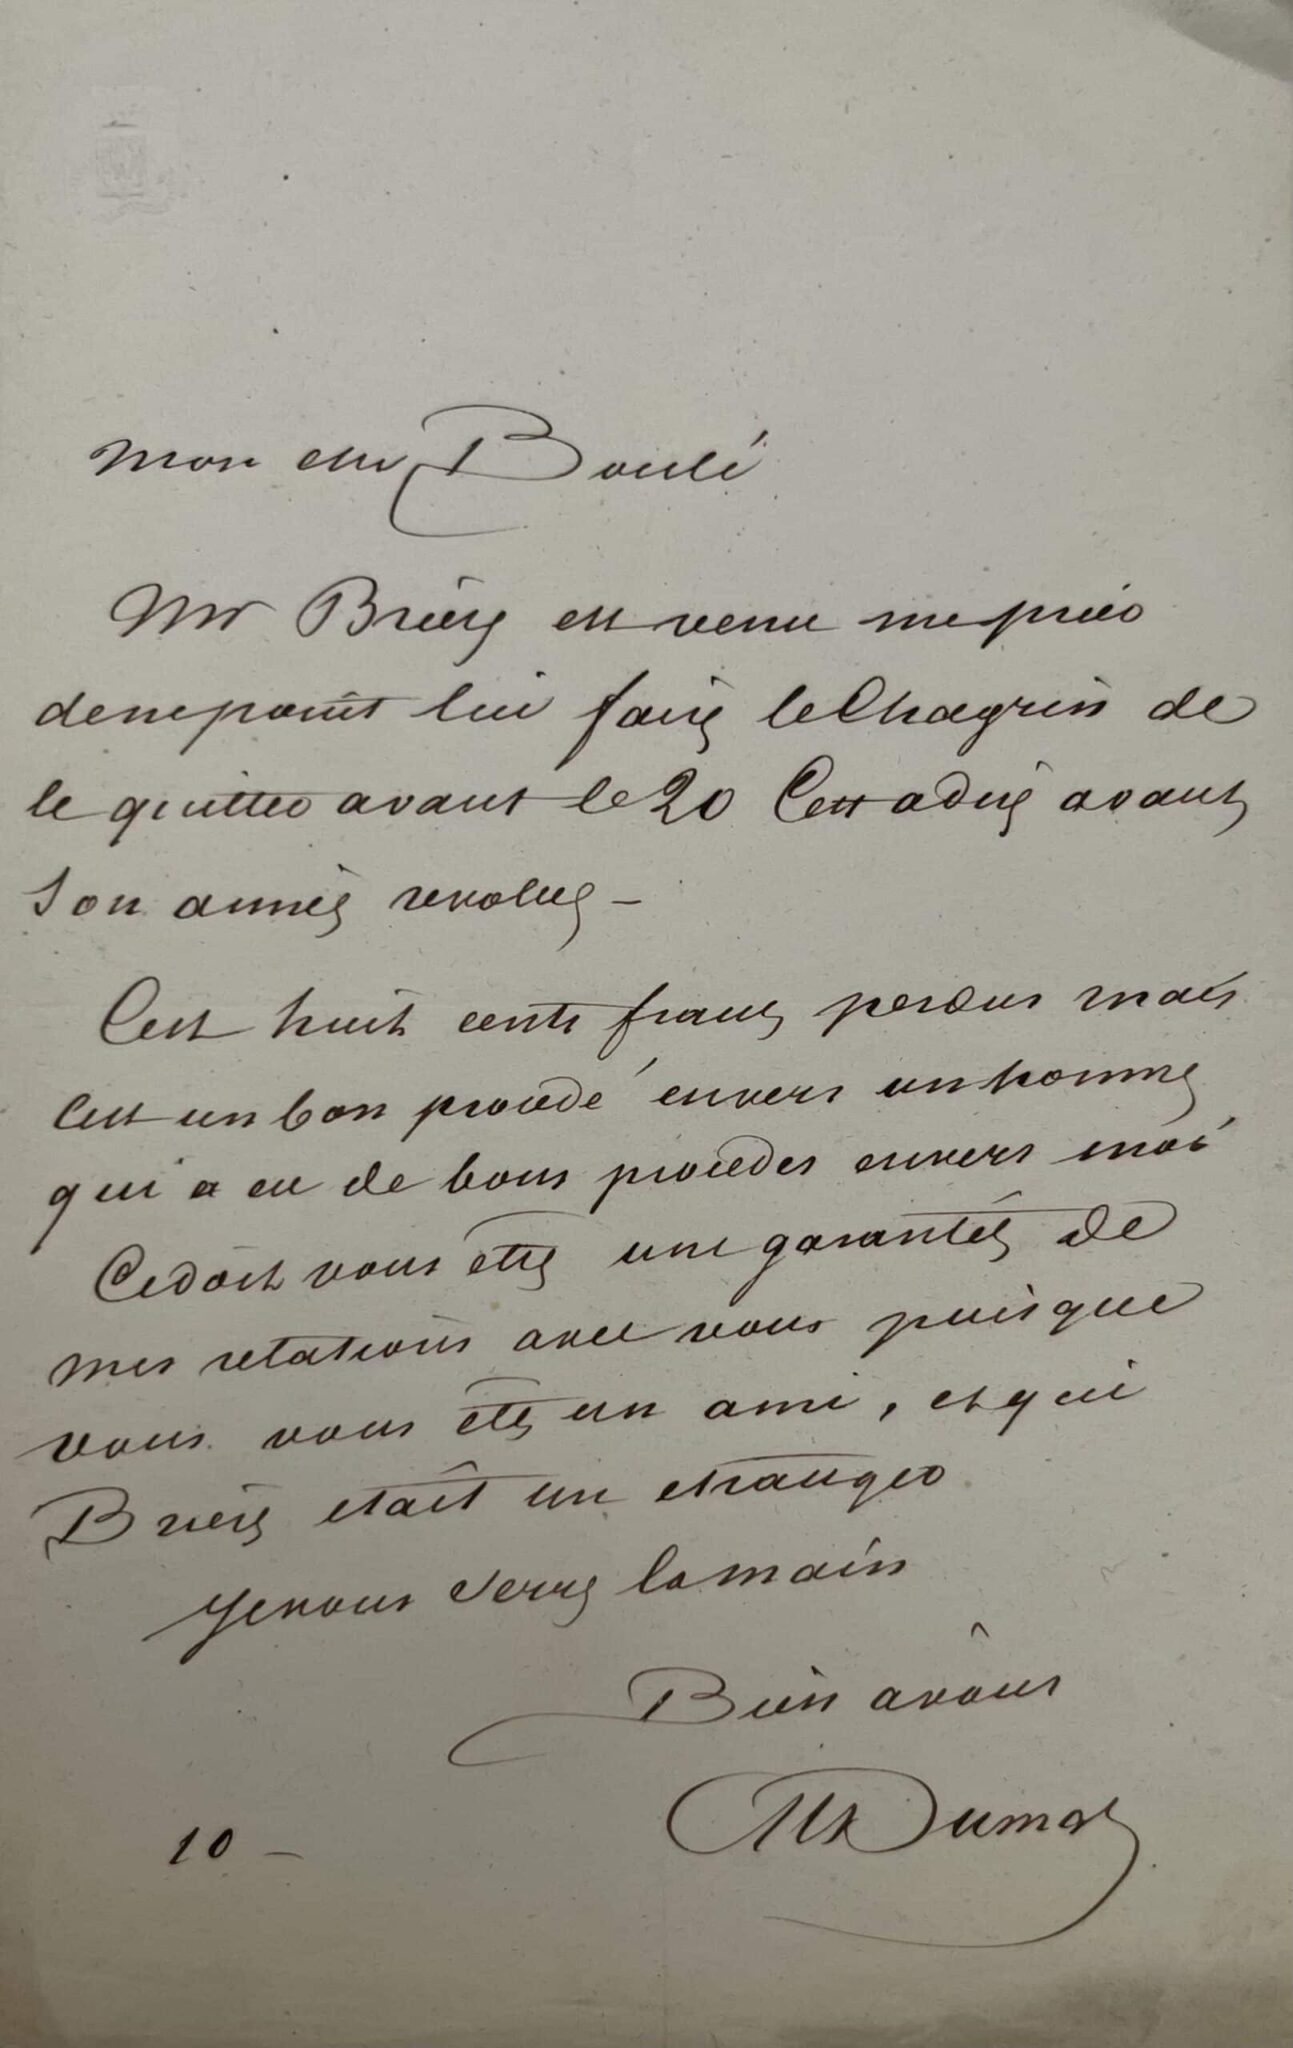 Mon cher Boulé
Mr Brière est venu me prier
de ne point lui faire le chagrin de
le quitter avant le 20 C'est a dire avant
son année revolue —
C'est huit cents francs perdus mais
c'est un bon procédé envers un homme
qui a eu de bons procedes envers moi
Ce doit vous être une garantie de
mes relations avec vous puisque
vous vous êtes un ami, et que
Brière etait un etranger
Je vous serre la main
Bien a vous
Alex Dumas
10 —